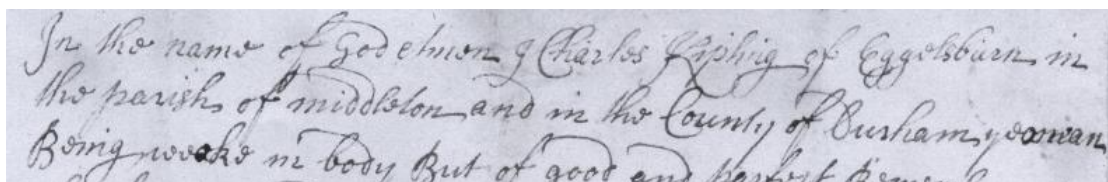 In the name of God Amen I Charles Kipling of Eggelsburn in
the parish of middleton and in the County of Durham yeoman
Being weake in body But of good and parfect